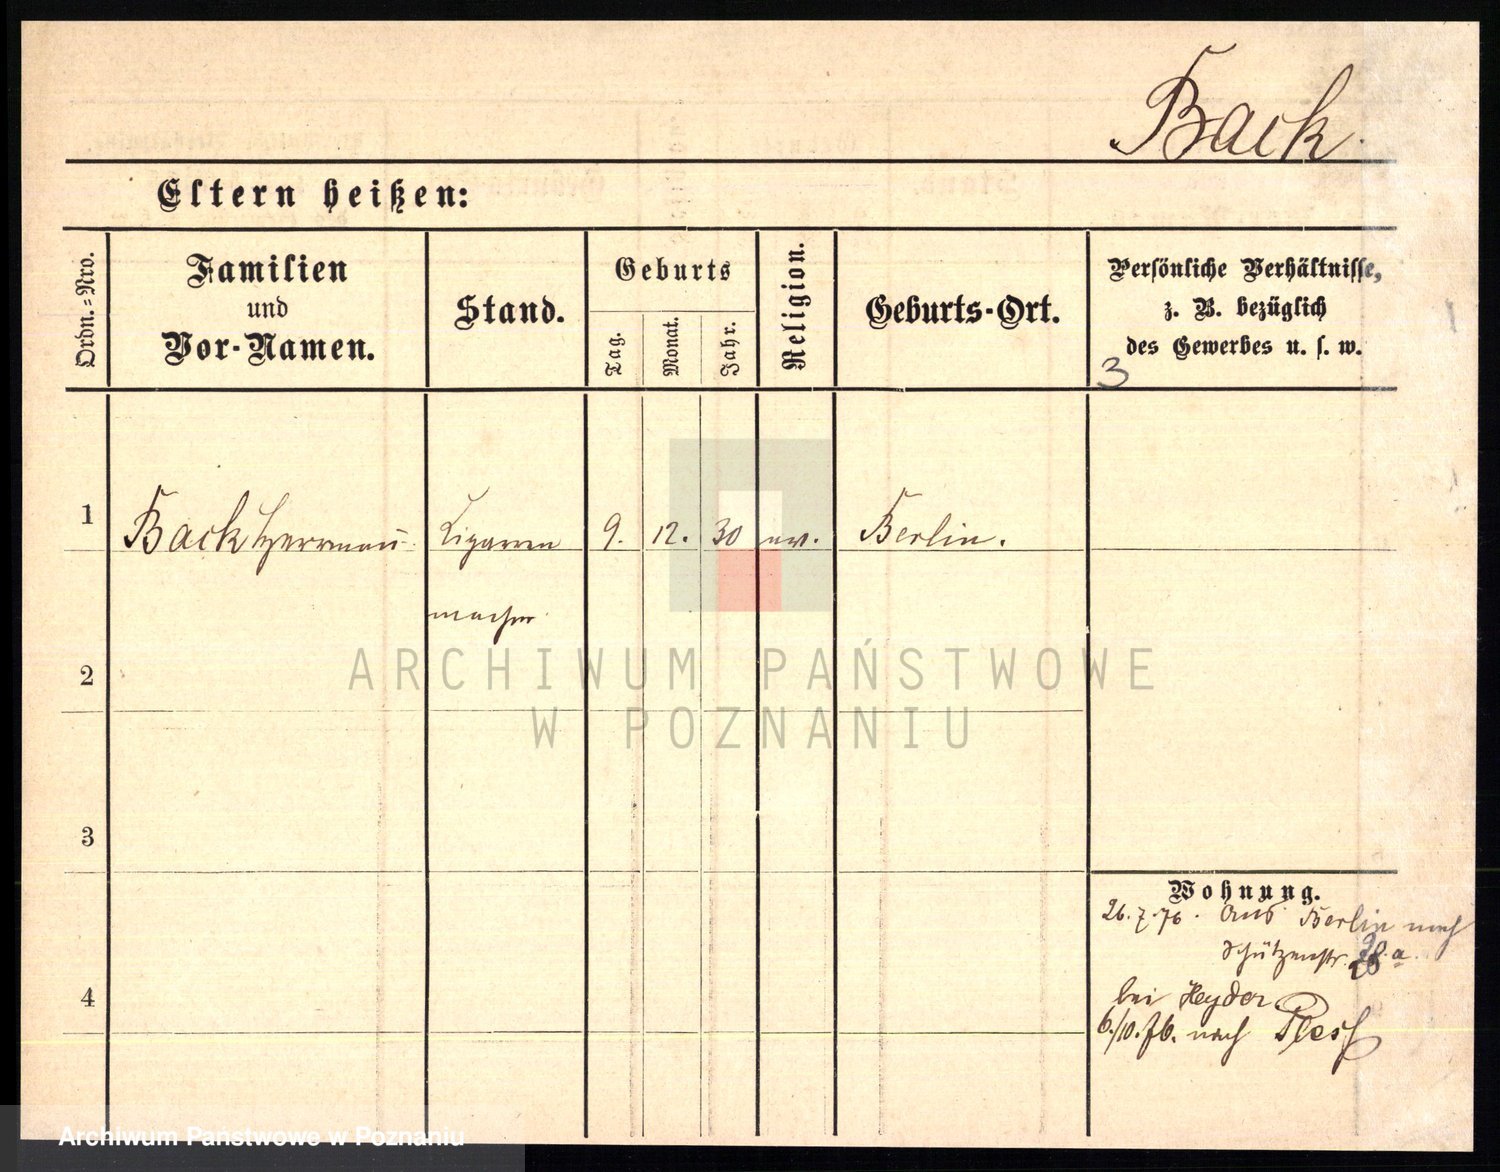 Back.
Eltern heißen:
Ordn.=Nro.
Familien
und
Vor-Namen.
Stand.
Geburts
Tag.
Monat.
Jahr.
Religion.
Geburts-Ort.
Persönliche Verhältnisse,
z. B. bezüglich
des Gewerbes u. s. w.
3
1 Back Herrman̄ Zigarren 9. 12. 30 ev. Berlin.
macher
ARCHIWUM PAŃSTWOWE
W POZNANIU
2
3
4
Wohnung.
26.7.76. Aus Berlin nach
Schützenstr. 28.a.
bei Heyder.
6./10.76. nach Plesch
Archiwum Państwowe w Poznaniu